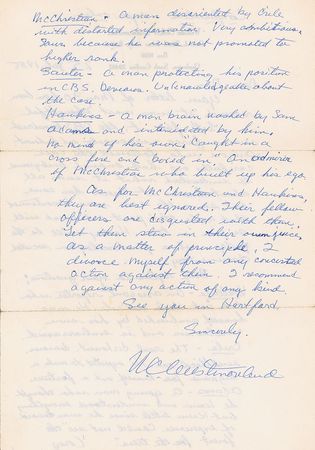 McChristian - A man disoriented by Crile
with distorted information. Very ambitious.
Sour because he was not promoted to
higher rank.
Sauter - A man protecting his position
in CBS. Devious. Unknowledgeable about
the case.
Hawkins - A man brain washed by Sam
Adams and intimidated by him.
No mind of his own. Caught in a
cross fire and boxed in. An admirer
of McChristian who built up his ego.
As for McChristian and Hawkins,
they are best ignored. Their fellow
officers are disgusted with them.
Let them stew in their own juice,
as a matter of principle, I
divorce myself from any concerted
action against them. I recommend
against any action of any kind.
See you in Hartford.
Sincerely,
WCWestmoreland